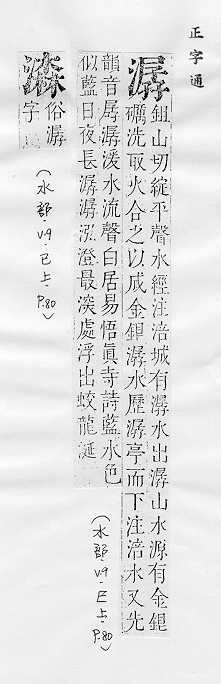 正字通
潺鉏山切綻平聲水經注涪城有潺水出潺山水源有金銀
礦洗取火合之以成金銀潺水歷潺亭而下注涪水又先
韻音孱潺湲水流聲白居易悟眞寺詩藍水色
似藍日夜長潺潺泓澄最深處浮出蛟龍涎
(水部.v.9.巳上.P.80)
俗潺
字
(水部.v.9.巳上.P.80)